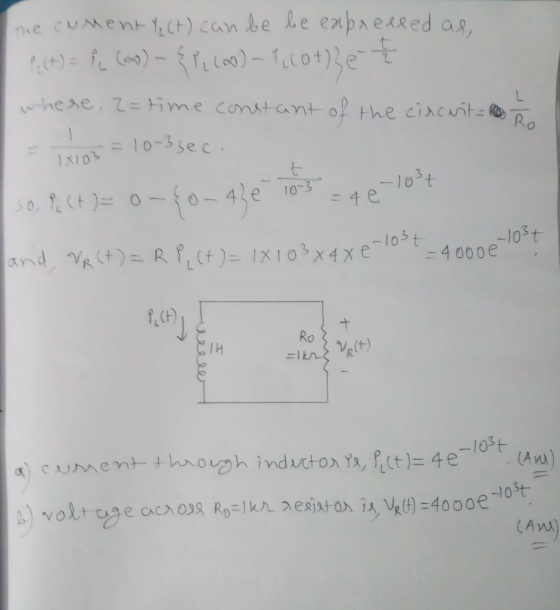 The current i_L(t) can be be expressed as,
i_L(t) = i_L(∞) - {i_L(∞) - i_L(0+)}e^{-t/τ}
where, τ = time constant of the circuit = L/R₀
= 1/1×10³ = 10⁻³ sec.
so, i_L(t) = 0 - {0 - 4}e^{-t/10⁻³} = 4e^{-10³t}
and, v_R(t) = R i_L(t) = 1×10³×4×e^{-10³t} = 4000e^{-10³t}.
i_L(t) ↓
1H
R₀ = 1kΩ
+
v_R(t)
-
a) current through inductor is, i_L(t) = 4e^{-10³t}. (Ans)
b) voltage across R₀=1kΩ resistor is, v_R(t) = 4000e^{-10³t}.
(Ans)